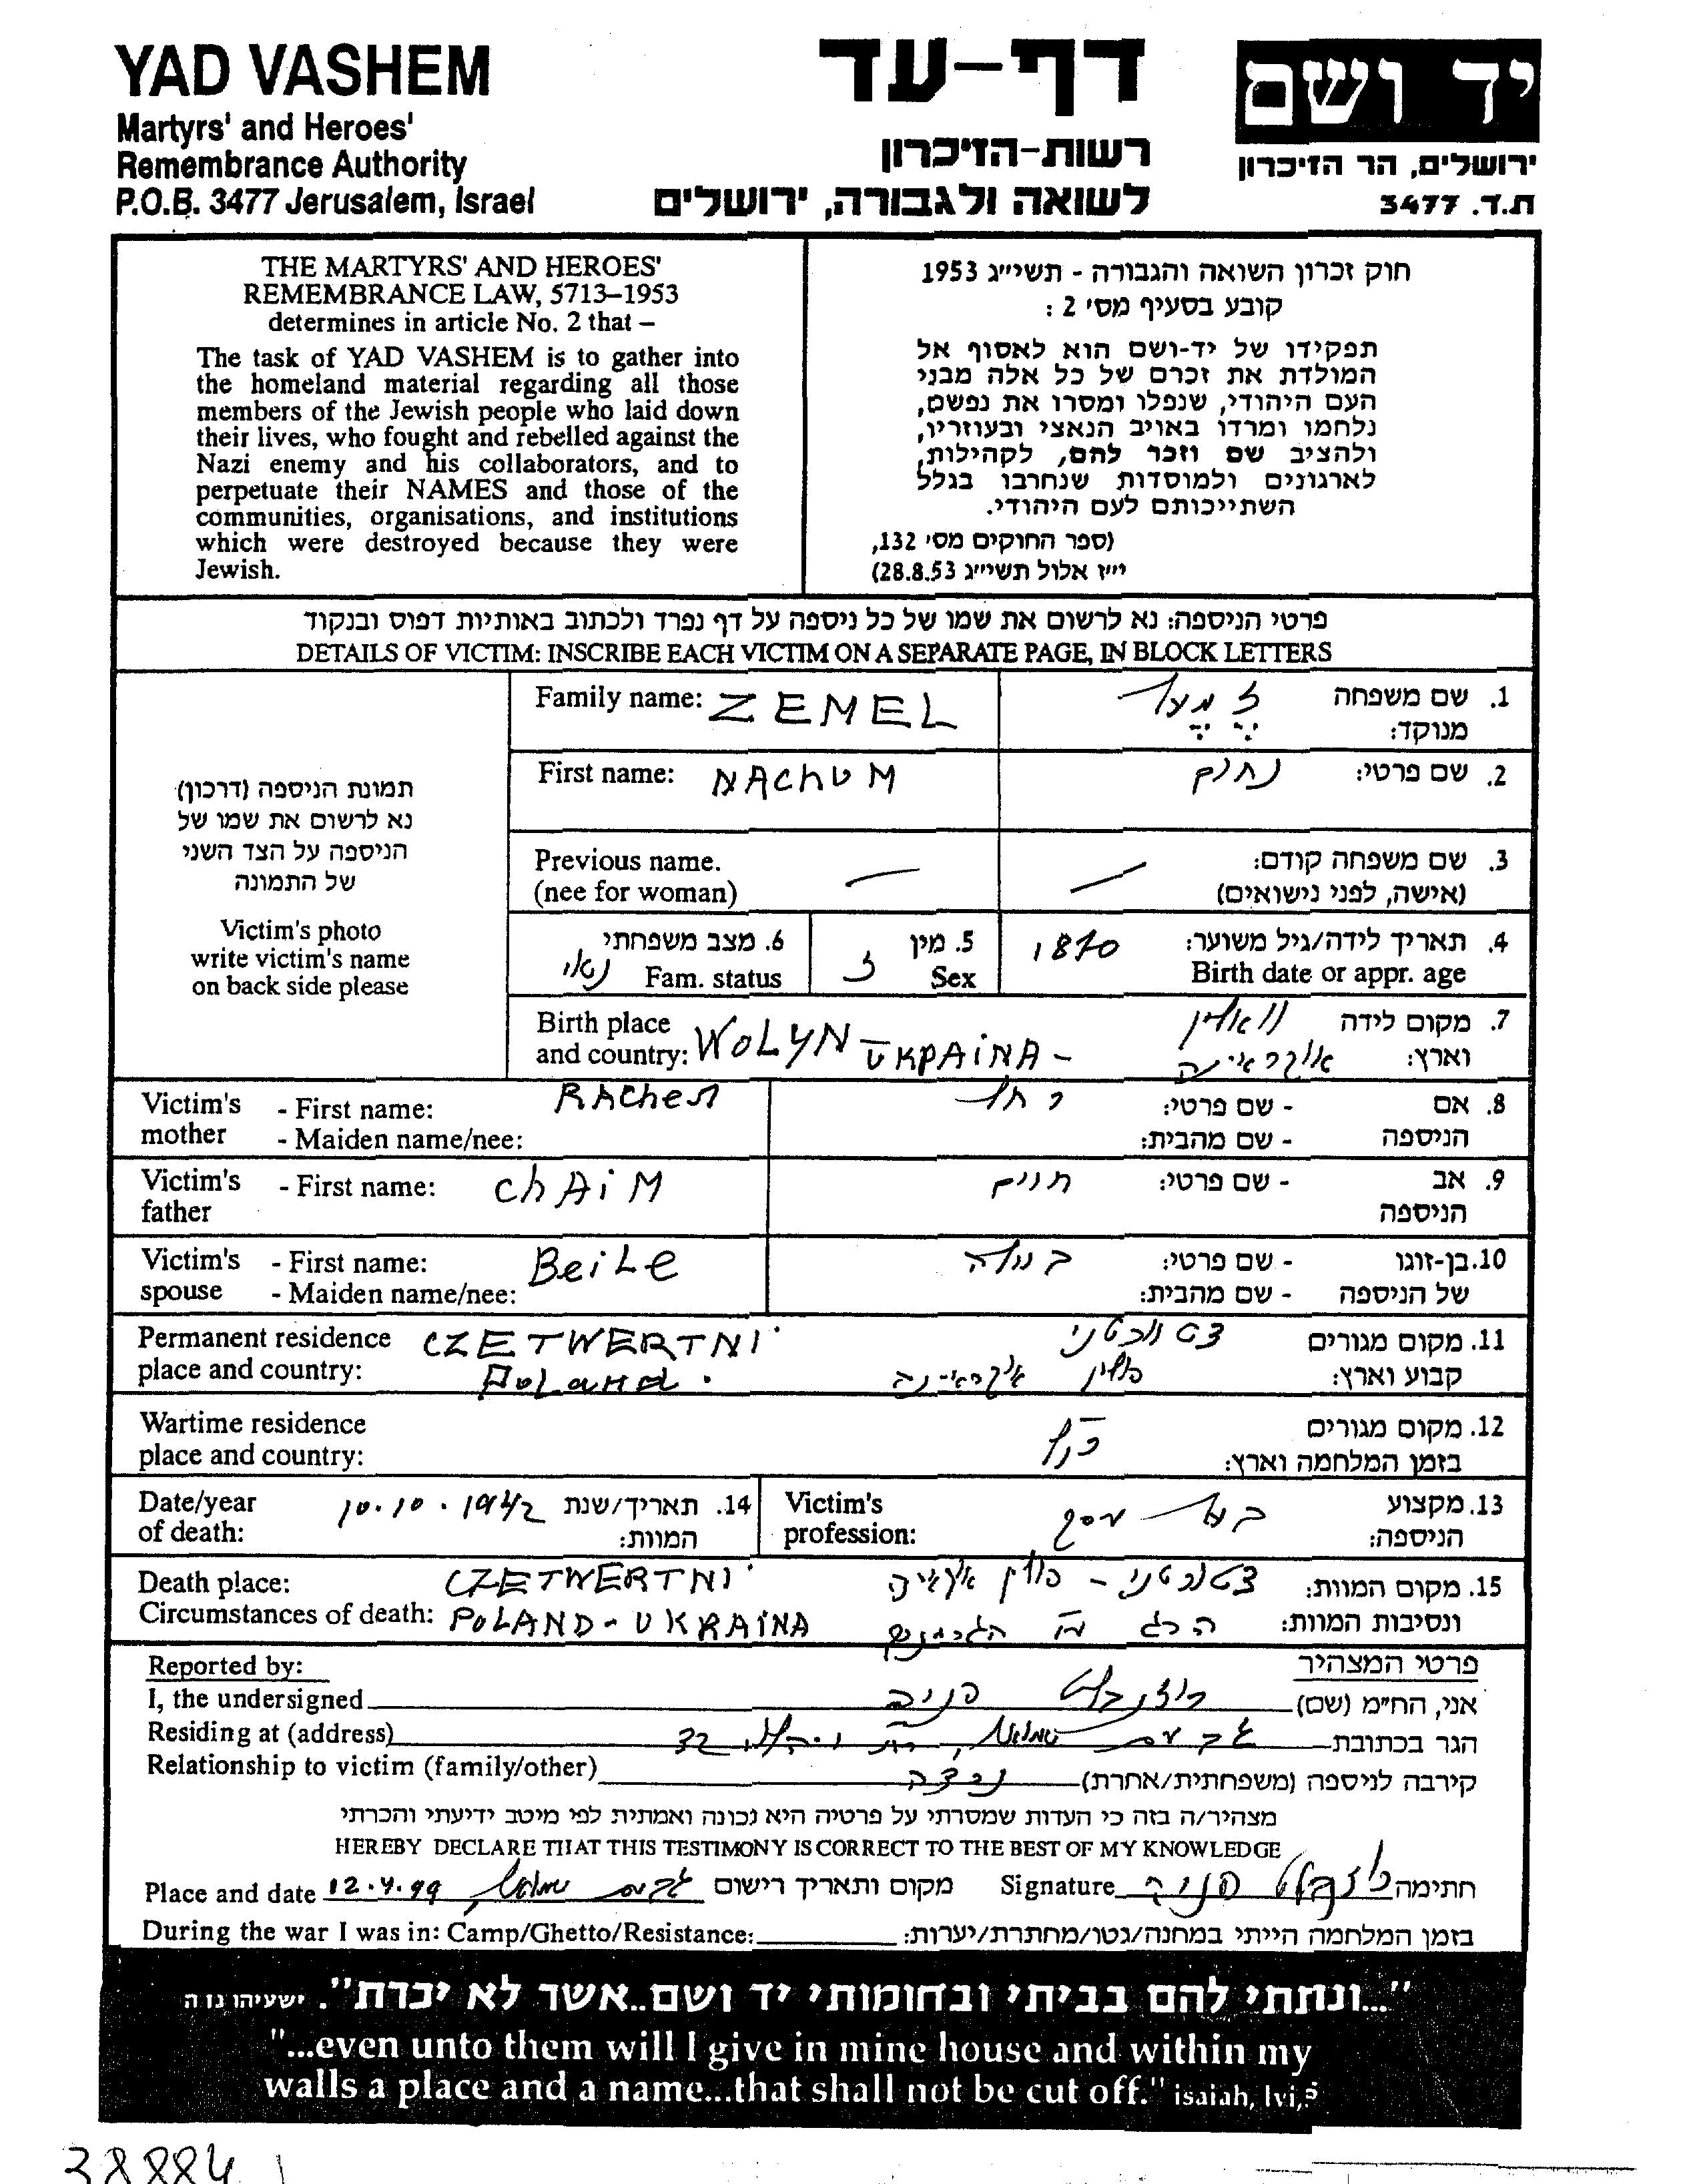 YAD VASHEM
Martyrs' and Heroes'
Remembrance Authority
P.O.B. 3477 Jerusalem, Israel
דף-עד
רשות-הזיכרון
לשואה ולגבורה, ירושלים
יד ושם
ירושלים, הר הזיכרון
ת.ד. 3477
THE MARTYRS' AND HEROES'
REMEMBRANCE LAW, 5713–1953
determines in article No. 2 that –
The task of YAD VASHEM is to gather into
the homeland material regarding all those
members of the Jewish people who laid down
their lives, who fought and rebelled against the
Nazi enemy and his collaborators, and to
perpetuate their NAMES and those of the
communities, organisations, and institutions
which were destroyed because they were
Jewish.
חוק זכרון השואה והגבורה - תשי״ג 1953
קובע בסעיף מס' 2 :
תפקידו של יד-ושם הוא לאסוף אל
המולדת את זכרם של כל אלה מבני
העם היהודי, שנפלו ומסרו את נפשם,
נלחמו ומרדו באויב הנאצי ובעוזריו,
ולהציב שם וזכר להם, לקהילות,
לארגונים ולמוסדות שנחרבו בגלל
השתייכותם לעם היהודי.
(ספר החוקים מס' 132,
י״ז אלול תשי״ג 28.8.53)
פרטי הניספה: נא לרשום את שמו של כל ניספה על דף נפרד ולכתוב באותיות דפוס ובנקוד
DETAILS OF VICTIM: INSCRIBE EACH VICTIM ON A SEPARATE PAGE, IN BLOCK LETTERS
תמונת הניספה (דרכון)
נא לרשום את שמו של
הניספה על הצד השני
של התמונה
Victim's photo
write victim's name
on back side please
Family name: ZEMEL
1. שם משפחה
מנוקד:
First name: NAChUM
2. שם פרטי: נחום
Previous name. —
(nee for woman)
3. שם משפחה קודם: —
(אישה, לפני נישואים)
6. מצב משפחתי
Fam. status נשוי
5. מין ז
Sex
4. תאריך לידה/גיל משוער: 1870
Birth date or appr. age
Birth place
and country: WOLYN UKPAiNA -
7. מקום לידה ווהלין
וארץ: אוקראינה
Victim's mother - First name: RAChel
- Maiden name/nee:
8. אם הניספה - שם פרטי: רחל
- שם מהבית:
Victim's father - First name: ChAiM
9. אב הניספה - שם פרטי: חיים
Victim's spouse - First name: BeiLe
- Maiden name/nee:
10. בן-זוגו של הניספה - שם פרטי: ביילה
- שם מהבית:
Permanent residence CZETWERTNI
place and country: Poland.
11. מקום מגורים
קבוע וארץ: פולין אוקראינה
Wartime residence
place and country:
12. מקום מגורים כנ"ל
בזמן המלחמה וארץ:
Date/year
of death:
14. תאריך/שנת 10.10.1942
המוות:
Victim's
profession:
13. מקצוע בעל עסק
הניספה:
Death place: CZETWERTNI
Circumstances of death: POLAND - UKRAiNA
15. מקום המוות: צטוורטני - פולין אוקראינה
ונסיבות המוות: הרג ע"י הגרמנים
Reported by:
I, the undersigned
Residing at (address)
Relationship to victim (family/other)
פרטי המצהיר
אני, הח״מ (שם) פניה
הגר בכתובת גבעת שמואל, 32
קירבה לניספה (משפחתית/אחרת) נכדה
מצהיר/ה בזה כי העדות שמסרתי על פרטיה היא נכונה ואמתית לפי מיטב ידיעתי והכרתי
HEREBY DECLARE THAT THIS TESTIMONY IS CORRECT TO THE BEST OF MY KNOWLEDGE
Place and date 12.4.99 גבעת שמואל מקום ותאריך רישום
Signature פניה חתימה
During the war I was in: Camp/Ghetto/Resistance:
בזמן המלחמה הייתי במחנה/גטו/מחתרת/יערות:
"...ונתתי להם בביתי ובחומותי יד ושם..אשר לא יכרת". ישעיהו נו ה
"...even unto them will I give in mine house and within my
walls a place and a name...that shall not be cut off." isaiah, lvi,5
38884